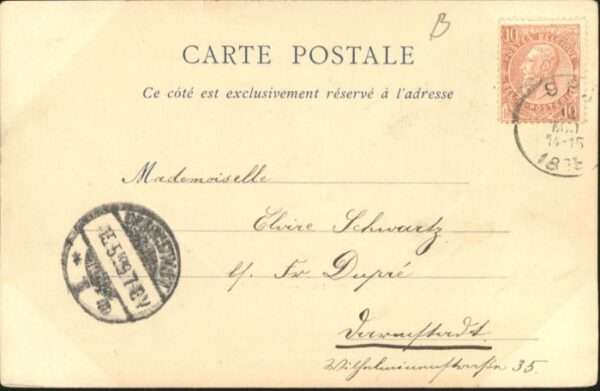 B
CARTE POSTALE
Ce côté est exclusivement réservé à l'adresse
10 10
14-15
Mademoiselle
Elvire Schwartz
Fr Dupré
Darmstadt
Wilhelminenstrasse 35.
DARMSTADT
15.5.99.7-8V
* 1